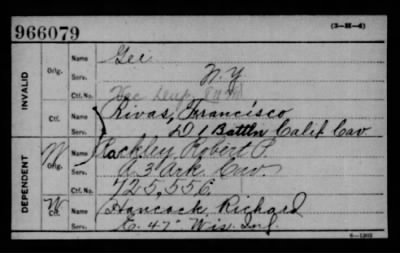 966079
(3-M-4)
INVALID
Orig. Gei
Serv. N.Y
Ctf. No.
Ctf. Rivas, Francisco
Serv. D 1 Battln Calif Cav
DEPENDENT
W Orig. Hackley Robert P.
Serv. A 3 Ark Cav
Ctf. No. 725,556
W Ctf. Hancock, Richard
Serv. E. 47" Wis. Inf.
6-1302